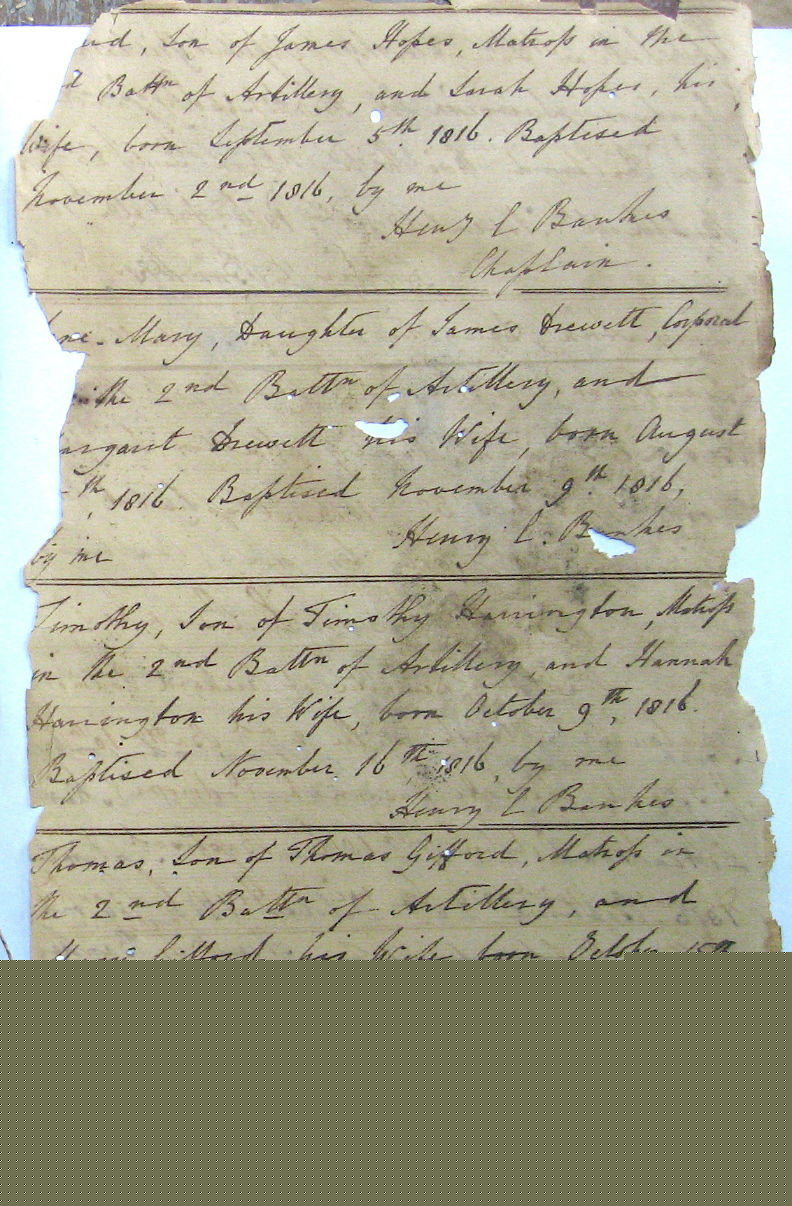 Son of James Hopes, Matross in the
Battn of Artillery, and Sarah Hopes, his
Wife, born September 5th 1816. Baptised
November 2nd 1816, by me
Henry C Bankes
Chaplain.
Mary, Daughter of James Drewett, Corporal
the 2nd Battn of Artillery, and
argaret Drewett his Wife, born August
th, 1816. Baptised November 9th 1816,
by me Henry C. Bankes
Timothy, Son of Timothy Harrington, Matross
in the 2nd Battn of Artillery, and Hannah
Harrington his Wife, born October 9th, 1816.
Baptised November 16th 1816, by me
Henry C Bankes
Thomas, Son of Thomas Gifford, Matross in
the 2nd Battn of Artillery, and
Gifford his Wife born October